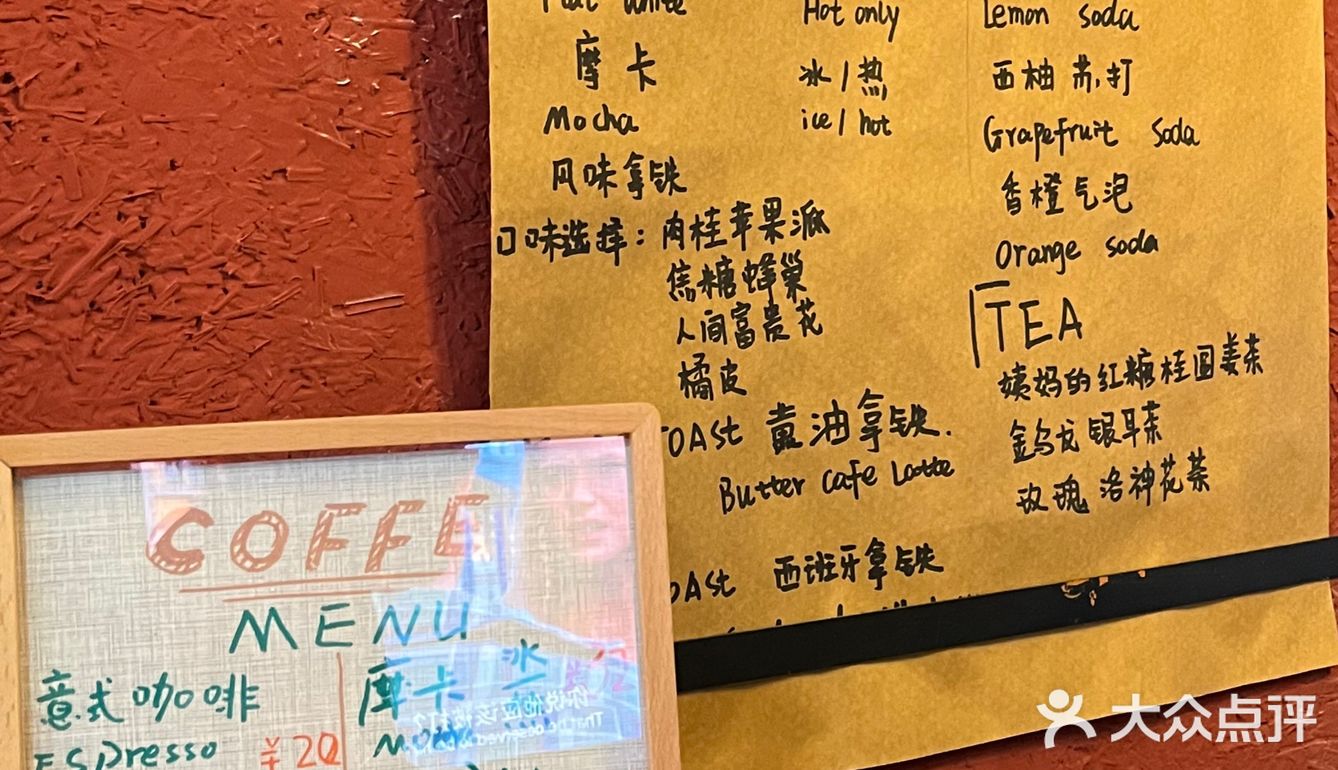 Flat White
Hot only
摩卡
冰/热
Mocha
ice/hot
风味拿铁
口味选择：肉桂苹果派
焦糖蜂巢
人间富贵花
橘皮
OAst 黄油拿铁.
Butter cafe Latte
OAst 西班牙拿铁
Lemon soda
西柚苏打
Grapefruit Soda
香橙气泡
Orange soda
TEA
姨妈的红糖桂圆姜茶
金乌龙银耳茶
玫瑰洛神花茶
COFFE
MENU
意式咖啡
ESPresso ¥20
摩卡 冰
你说他应该被打?
大众点评